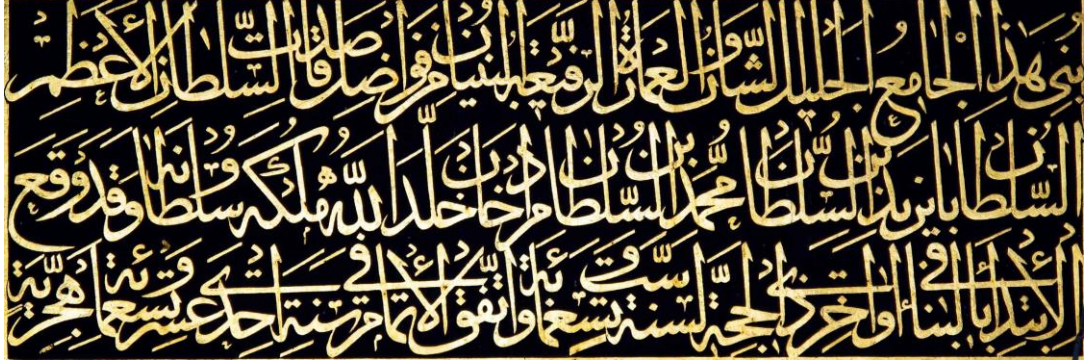 بُني هذا الجامع الجليل الشان والعمارة الرفيعة البنيان من فواضل صدقات السلطان الأعظم
السلطان بايزيد بن السلطان محمد بن السلطان مراد خان خلد الله ملكه وسلطانه وقد وقع
الأبتداء بالبناء في أواخر ذي الحجة لسنة ست وتسعمائة واتفق الأتمام في سنة احدى عشر وتسعمائة هجرية